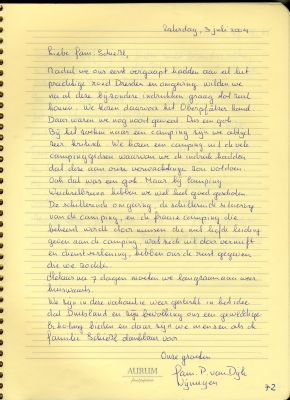 Saturday, 3 juli 2004
Liebe fam. Schießl,
Nadat we ons eerst vergaapt hadden aan al het
prachtige rond Dresden en omgeving wilden we
na al deze bijzondere indrukken graag tot rust
komen. We kozen daarvoor het Oberpfälzer Wand
Daar waren we nog nooit geweest. Dus een gok.
Bij het zoeken naar een camping zijn we altijd
zeer kritisch. We kozen een camping uit de vele
campinggidsen waarvan we de indruk hadden
dat deze aan onze verwachtinge zou voldoen.
Ook dat was een gok. Maar bij Camping
hebben we wel heel goed gescholen.
De schitterende omgeving, de schitterende
van de camping, en de fraaie camping die
beheerd wordt door mensen die met liefde leiding
geven aan de camping, wat zich uit door vernuft
en dienstverlening, hebben ons de rust gegeven
die we zochten.
Helaas na 7 dagen moeten we langzaam aan weer
huiswaarts.
We zijn in deze vakantie weer gesterkt in het idee
dat Duitsland en zijn bevolking ons een geweldige
Erholung bieden en daar zijn we mensen als de
familie Schießl dankbaar voor
Onze groeten
fam. P. van Dyk
Nijmegen
AURUM
72